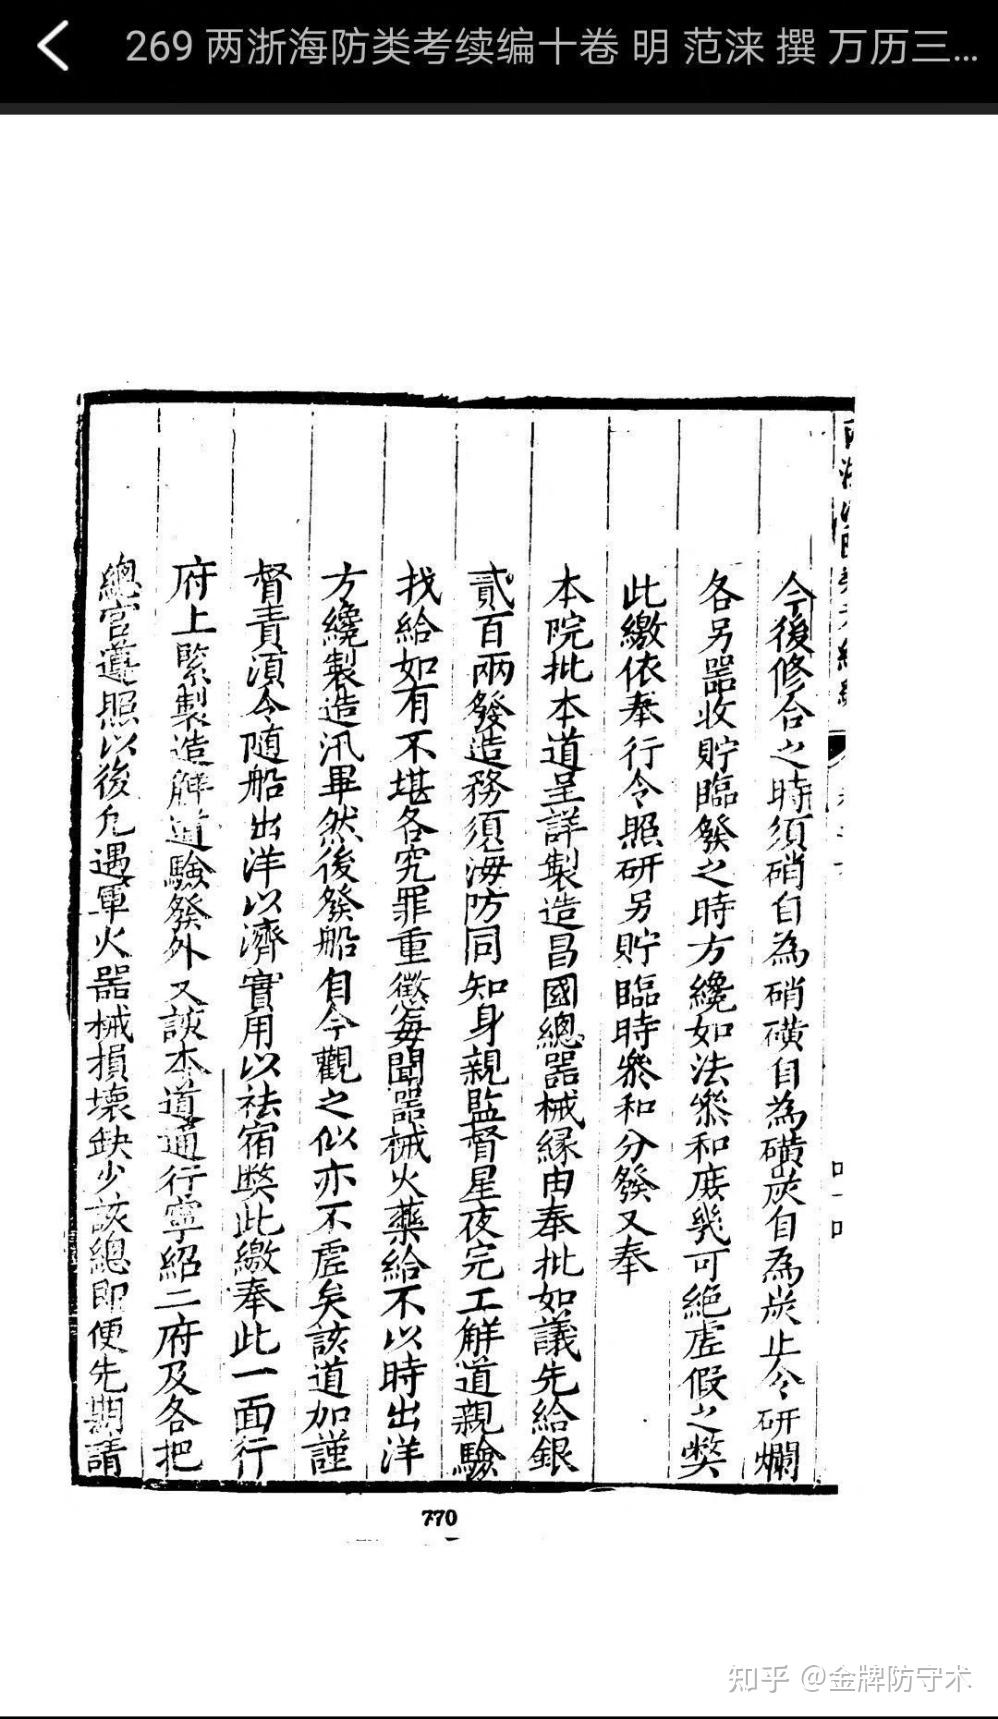 269 两浙海防类考续编十卷 明 范涞 撰 万历三...
今後修合之時須硝自為硝磺自為磺炭自為炭止令研爛
各另噐收貯臨發之時方纔如法叅和庻幾可絕虗假之獘
此繳依奉行令照研另貯臨時叅和分發又奉
本院批本道呈詳製造昌國總噐械緣由奉批如議先給銀
貳百兩發造務須海防同知身親監督星夜完工觧道親驗
找給如有不堪各究罪重懲每聞噐械火藥給不以時出洋
方纔製造汛畢然後發船自今觀之似亦不虗矣該道加謹
督責湏令随船出洋以濟實用以祛宿獘此繳奉此一面行
府上緊製造觧道驗發外又該本道通行寧紹二府及各把
總官遵照以後凢遇軍火噐械損壞缺少該總即便先期請
770
知乎 @金牌防守术